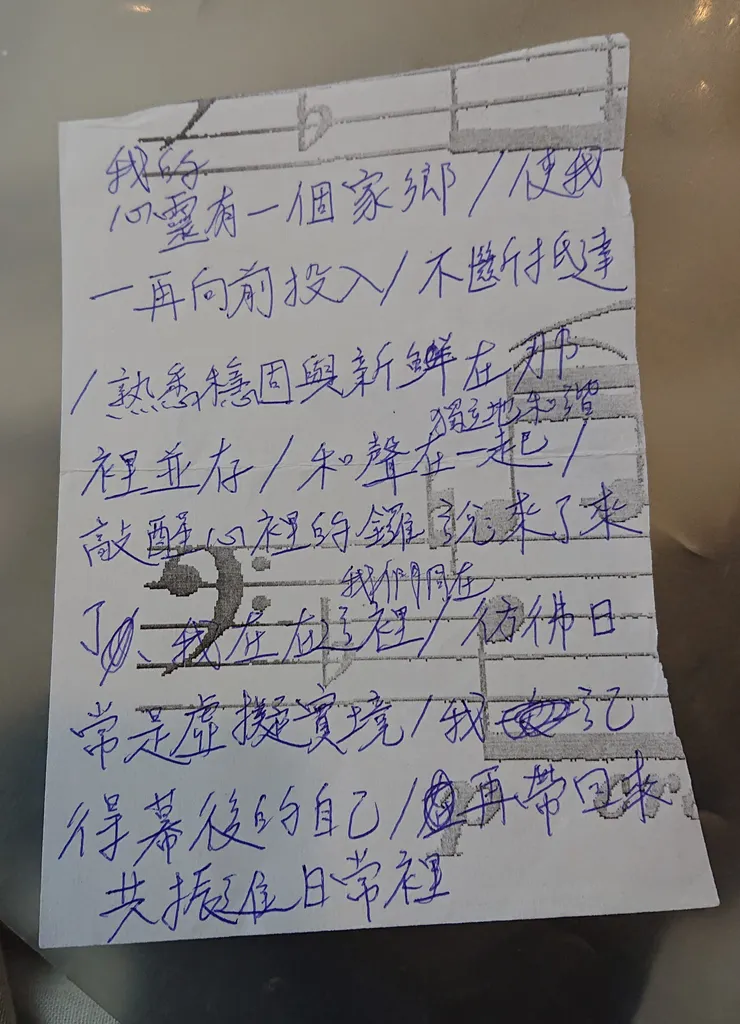 我的
心靈有一個家鄉/使我
一再向前投入/不斷抵達
/熟悉穩固與新鮮在那
獨立地和諧
裡並存/和聲在一起/
敲醒心裡的鑼說來了來
我們同在
了、我在在這裡/彷彿日
常是虛擬實境/我記
得幕後的自己/再帶回來
共振進日常裡